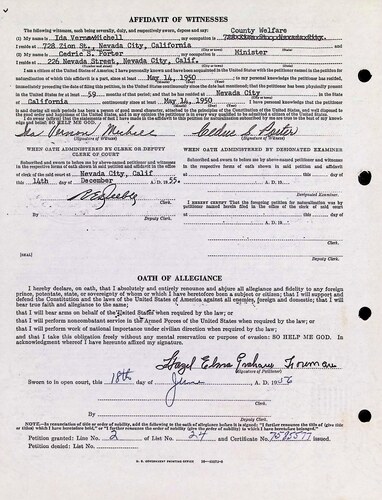 AFFIDAVIT OF WITNESSES
The following witnesses, each being severally, duly, and respectively sworn, depose and say:
My name is Ida Vernon Michell my occupation is County Welfare
I reside at 728 Zion St., Nevada City, California
My name is Cedric S. Porter my occupation is Minister
I reside at 226 Nevada Street, Nevada City, Calif.
I am a citizen of the United States of America; I have personally known and have been acquainted in the United States with the petitioner named in the petition for
naturalization of which this affidavit is a part, since at least May 14, 1950; to my personal knowledge the petitioner has resided,
immediately preceding the date of filing this petition, in the United States continuously since the date last mentioned; that the petitioner has been physically
present in the United States for 59 months of that period; and that he has resided at Nevada City
California continuously since May 14, 1950
I have personal knowledge that the petitioner is and during all such periods has been a person of good moral character, attached to the principles of the Constitution of the United States, and well disposed to the
good order and happiness of the United States, and in my opinion the petitioner is in every way qualified to be admitted a citizen of the United States.
I do swear (affirm) that the statements of fact I have made in this affidavit to this petition for naturalization subscribed by me are true to the best of my knowl-
edge and belief: SO HELP ME GOD.
Ida Vernon Michell Cedric S. Porter
(Signature of Witness) (Signature of Witness)
WHEN OATH ADMINISTERED BY CLERK OR DEPUTY
CLERK OF COURT
Subscribed and sworn to before me by above-named petitioner and witnesses
in the respective forms of oath shown in said petition and affidavit in the office
of clerk of the said court at Nevada City, Calif
14th day of December A. D. 1955.
Clerk.
By
Deputy Clerk.
[SEAL]
WHEN OATH ADMINISTERED BY DESIGNATED EXAMINER
Subscribed and sworn to before me by above-named petitioner and witnesses
in the respective forms of oath shown in said petition and affidavit
at
this day of A. D. 19
Designated Examiner.
I HEREBY CERTIFY that the foregoing petition for naturalization was by
petitioner named herein filed in the office of the clerk of said court
Clerk.
By
Deputy Clerk.
OATH OF ALLEGIANCE
I hereby declare, on oath, that I absolutely and entirely renounce and abjure all allegiance and fidelity to any foreign
prince, potentate, state, or sovereignty of whom or which I have heretofore been a subject or citizen; that I will support and
defend the Constitution and the laws of the United States of America against all enemies, foreign and domestic; that I will
bear true faith and allegiance to the same;
that I will bear arms on behalf of the United States when required by the law; or
that I will perform noncombatant service in the Armed Forces of the United States when required by the law; or
that I will perform work of national importance under civilian direction when required by the law;
and that I take this obligation freely without any mental reservation or purpose of evasion: SO HELP ME GOD. In
acknowledgment whereof I have hereunto affixed my signature.
Hazel Elma
(Signature of Petitioner)
Sworn to in open court, this 18th day of June A. D. 1956
Clerk.
By
Deputy Clerk.
NOTE.—In renunciation of title or order of nobility, add the following to the oath of allegiance before it is signed: "I further renounce the title of (give title
or titles) which I have heretofore held," or "I further renounce the order of nobility (give the order of nobility) to which I have heretofore belonged."
Petition granted: Line No. 2 of List No. 24 and Certificate No. 7585577 issued.
Petition denied: List No.
U. S. GOVERNMENT PRINTING OFFICE